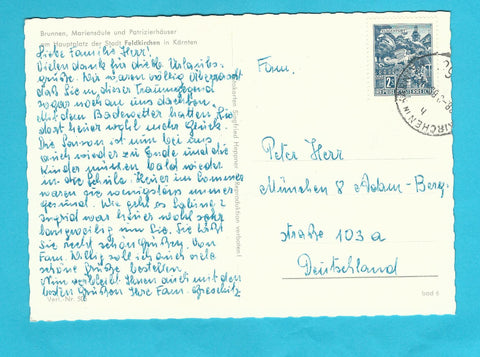 Brunnen, Mariensäule und Patrizierhäuser
am Hauptplatz der Stadt Feldkirchen in Kärnten
Liebe Familie Herr!
Vielen dank für die Urlaubs-
grüße. Wir waren völlig überrascht
daß Sie in dieser Traumgegend
sogar noch an uns dachten.
Mit dem Badewetter hatten Sie
dort heuer wohl mehr Glück.
Die Saison ist nun bei uns
auch wieder zu Ende und die
Kinder müssen bald wieder
in die Schule. Heuer im Sommer
waren sie wenigstens immer
gesund. Wie geht es Sabine?
Ingrid war heuer wohl sehr
langweilig um Sie. Sie läßt
Sie recht schön Grüßen. Von
Fam. soll ich auch viele
schöne Grüße bestellen.
Nun verbleibt Ihnen auch mit den
besten Grüßen Ihre Fam.
Verl.-Nr. 505
Fam.
Peter Herr
München 8 Adam-Berg-
straße 103 a
Deutschland
bad 6
REPUBLIK ÖSTERREICH
KIRCHEN IN